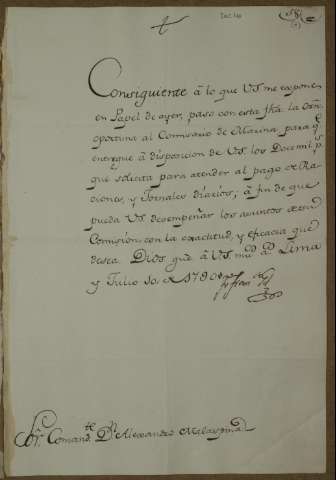 58
Consiguiente â lo que VS. me expone
en Papel de ayer, paso con esta fha. la Orñ.
oportuna al Comisario de Marina para q.e
entregue â disposicion de VS. los Docemil p.s
que solicita para atender al pago de Ra-
ciones, y Jornales diarios, â fin de que
pueda VS. desempeñar los asuntos de su
Comision con la exactitud, y eficacia que
desea. Dios gue. â VS. m.s a.s Lima
y Julio 10. de 1790.
S.or Comand.te D.n Alexandro Malaspina.